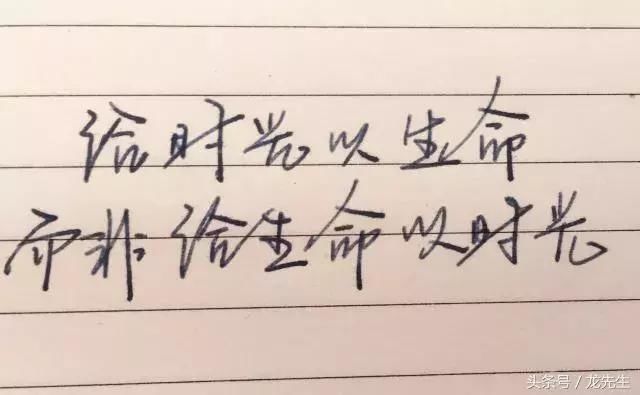 给时光以生命
而非给生命以时光
头条号/龙先生